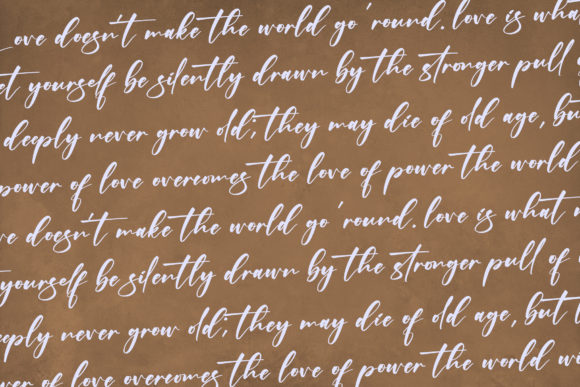 Love doesn't make the world go 'round. love is what
yourself be silently drawn by the stronger pull
deeply never grow old; they may die of old age, but
power of love overcomes the love of power the world
doesn't make the world go 'round. love is what
yourself be silently drawn by the stronger pull of
never grow old; they may die of old age, but
of love overcomes the love of power the world